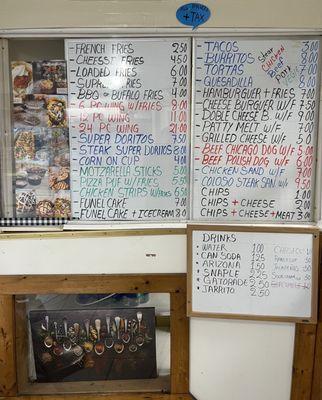 + TAX
FRENCH FRIES 2.50
CHEESE FRIES 4.50
LOADED FRIES 6.00
SUPREME FRIES 7.00
BBQ + BUFFALO FRIES 4.00
6 PC WING W/FRIES 9.00
12 PC WING 11.00
24 PC WING 21.00
SUPER DORITOS 7.50
STEAK SUPER DORITOS 8.50
CORN ON CUP 4.00
MOZZARELLA STICKS 5.00
PIZZA PUF W/FRIES 5.50
CHICKEN STRIPS W/FRIES 6.50
FUNNEL CAKE 7.00
FUNNEL CAKE + ICECREAM 8.00
TACOS
BURRITOS
TORTAS
QUESADILLA
Steak
CHICKEN
BEEF
PORK
HAMBURGER + FRIES 7.00
CHEESE BURGUER W/F 7.50
DOBLE CHEESE B. W/F 9.00
PATTY MELT W/F 7.00
GRILLED CHEESE W/F 5.00
BEEF CHICAGO DOG W/F 5.00
BEEF POLISH DOG W/F 6.00
CHICKEN SAND W/FRIES 7.00
COLOSO STEAK SAN W/F 9.50
CHIPS 1.00
CHIPS + CHEESE 2.00
CHIPS + CHEESE + MEAT 3.00
DRINKS
WATER 1.00
CAN SODA 1.25
ARIZONA 1.50
SNAPLE 2.25
GATORADE 2.50
JARRITO 2.50